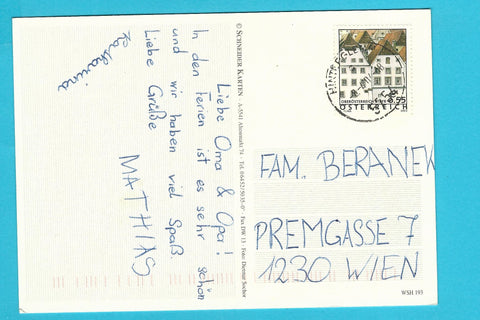 Liebe Oma & Opa!
In den Ferien ist es sehr schön
und wir haben viel Spaß
Liebe Grüße
MATHIAS
Katharina
© SCHNEIDER KARTEN - A-5541 Altenmarkt 74 - Tel. 06452/5035-0 Fax DW 13 - Foto: Dietmar Sochor
55
ÖSTERREICH
FAM. BERANEK
PREMGASSE 7
1230 WIEN
WSH 193